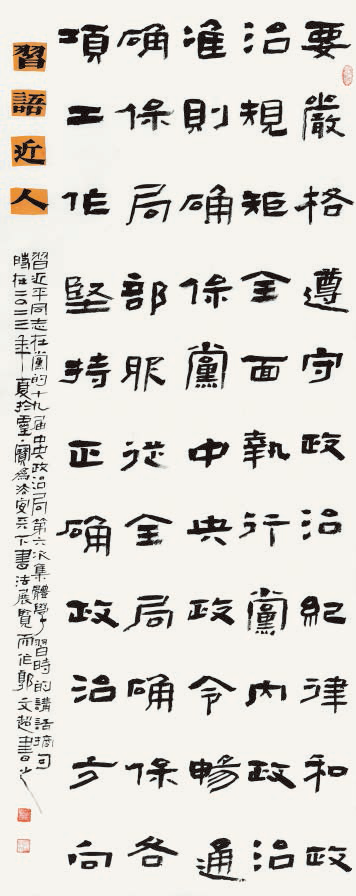 要嚴格遵守政治紀律和政
治規矩全面執行黨內政治
准則确保黨中央政令暢通
确保局部服從全局确保各
項工作堅持正确政治方向
習語近人
習近平同志在黨的十九屆中央政治局第六次集體學習時的講話摘句
時在二〇二三年夏於靈寶為法安天下書法展覽而作郭文超書之